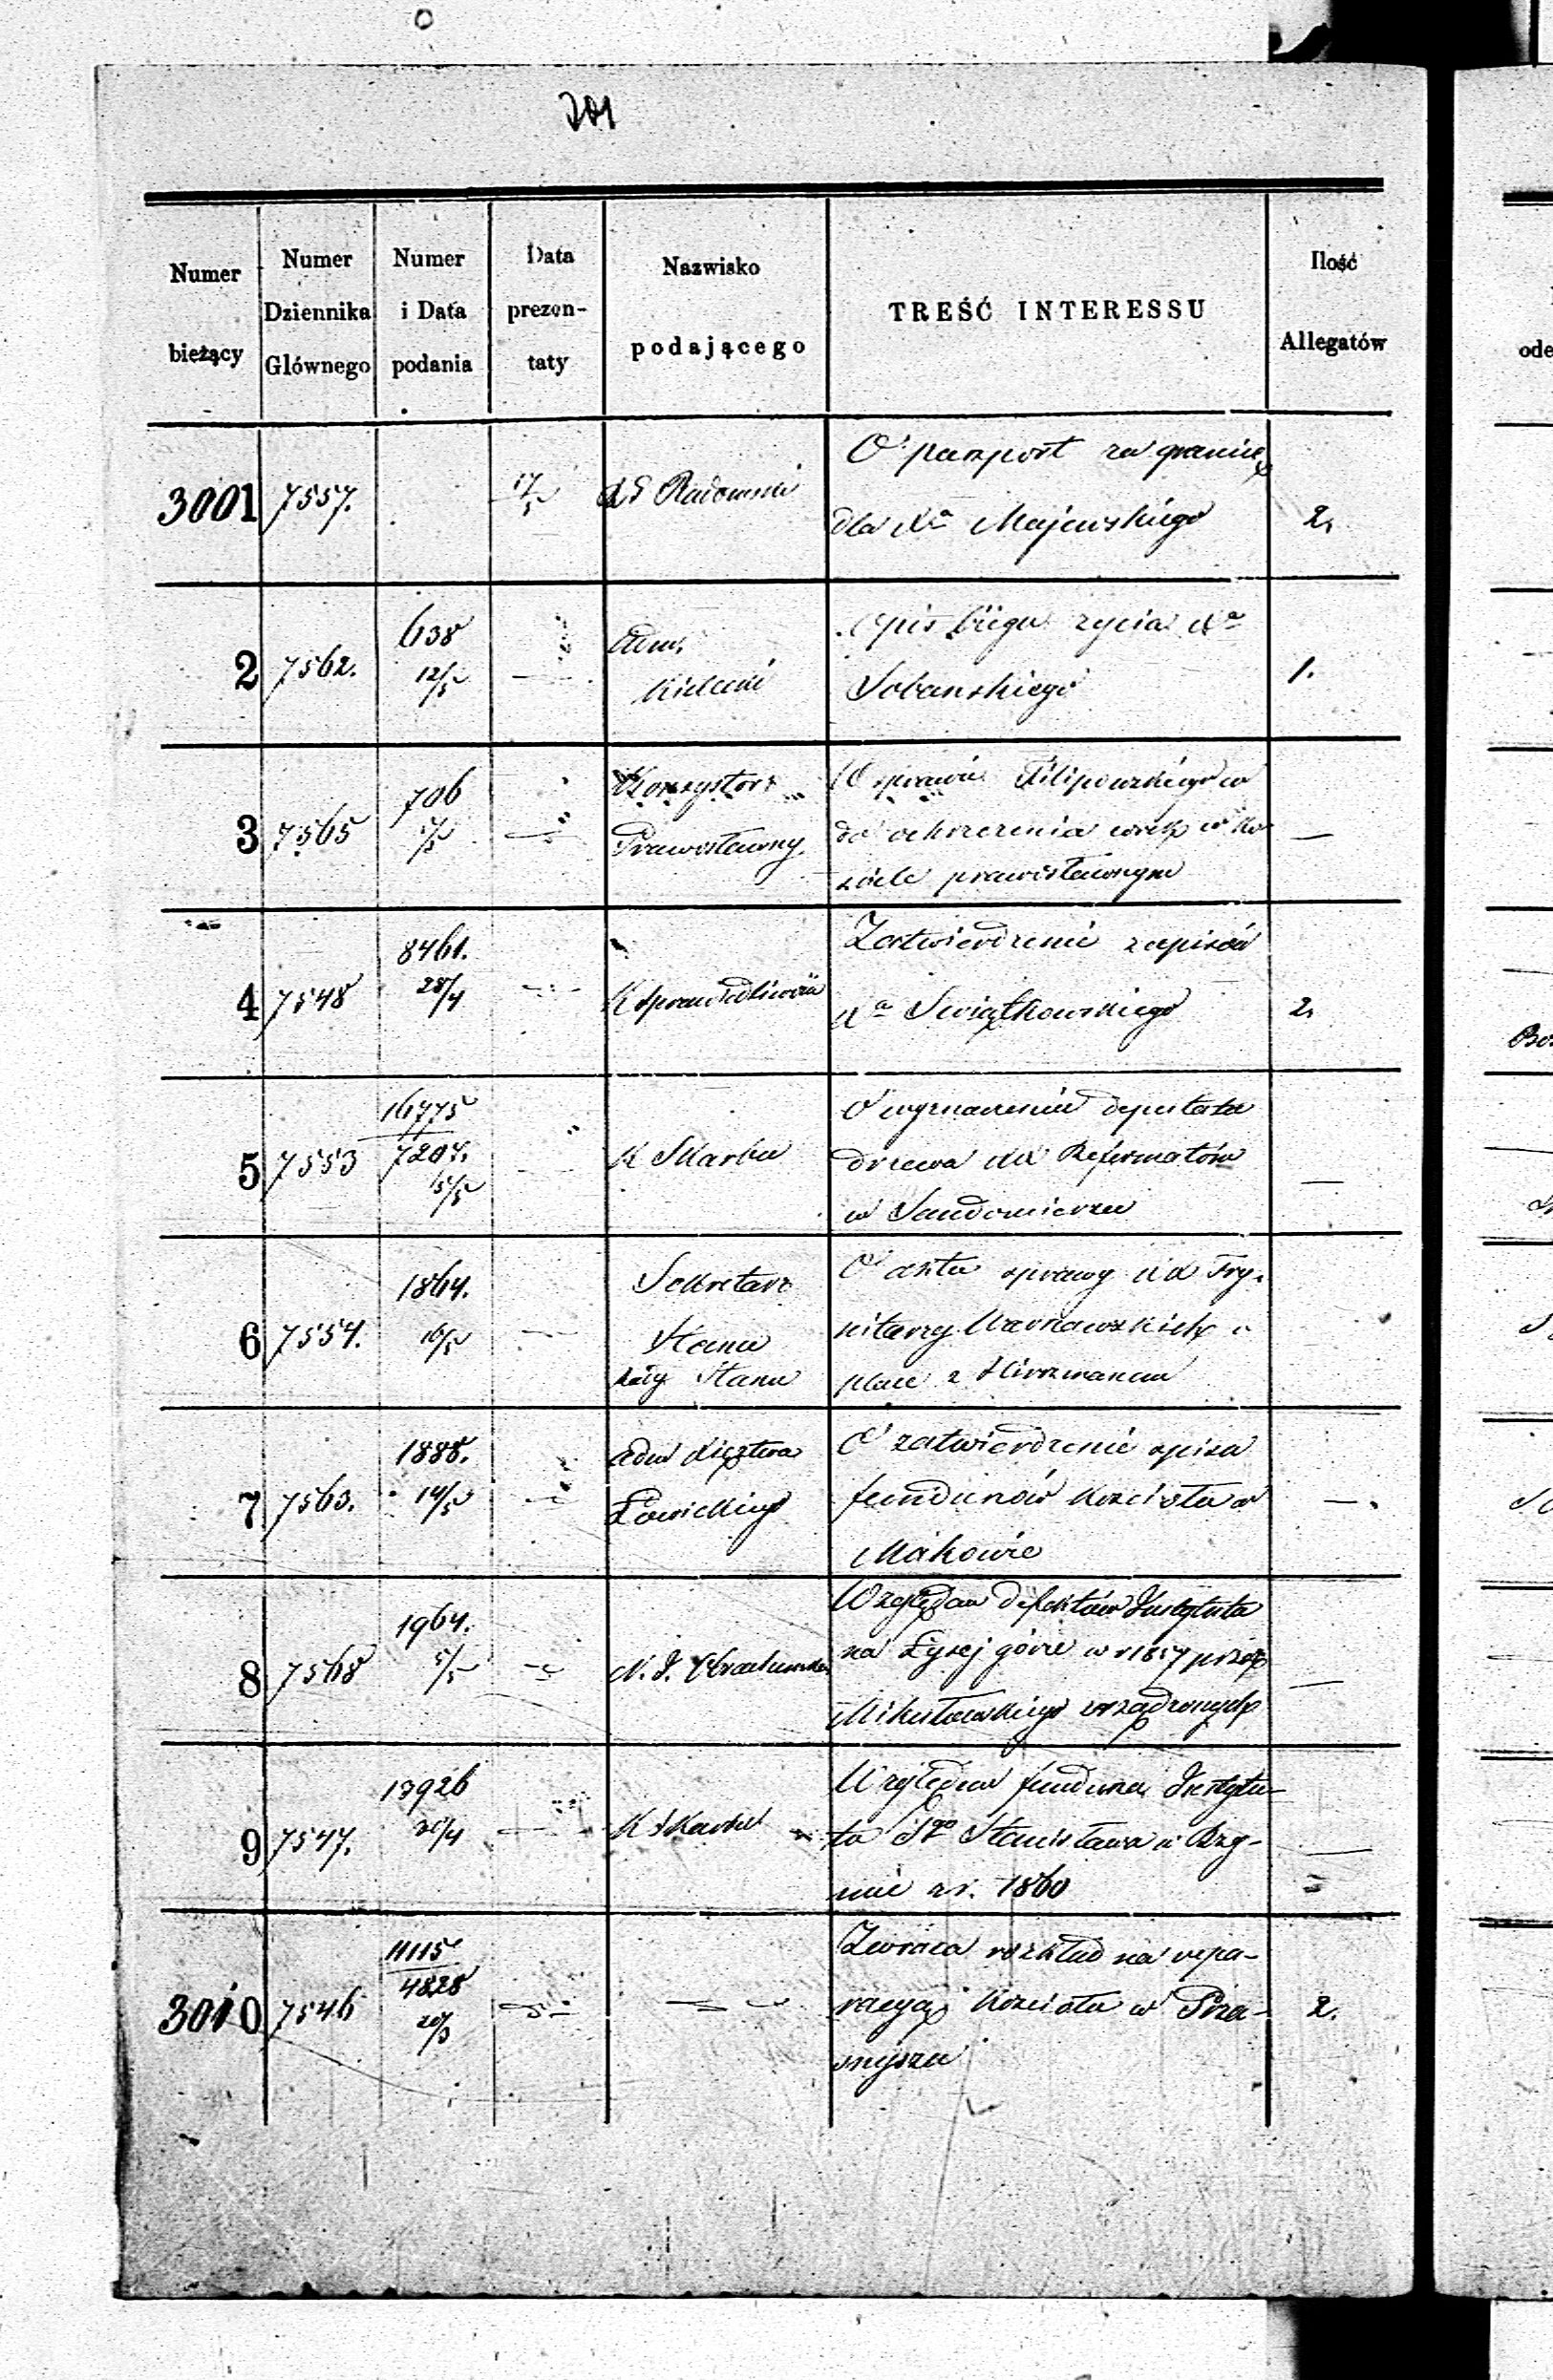 201
Numer bieżący
Numer Dziennika Głównego
Numer i Data podania
Data prezen- taty
Nazwisko podającego
TREŚĆ INTERESSU
Ilość Allegatów
3001 7557. 17/5 Radomski
O paszport za granicę
dla Xa Majewskiego 2,
2 7562. 638 12/5 Adm. Kielecki
Opis biegu życia Xa
Sobanskiego 1.
3 7565 706 Konsystorz Prawosławny
W sprawie Filipowskiego w
do ochrzczenia córk w ko
ściele prawosławnym —
4 7548 8461. 28/4 K Sprawiedliwości
Zatwierdzenie zapisów
Xa Swiątkowskiego 2,
5 7553 16775 7207. 15/5 K Skarbu
O wyznaczenie deputatu
drzewa XX Reformatów
w Sandomierzu —
6 7554. 1864. 16/5 Sekretarz
Stanu
Rady Stanu
O akta sprawy XX Try-
nitarzy Warszawskich o
place z Hirszmanem
7 7563. 1888. 14/5 Adm Księztwa
Łowickiego
O zatwierdzenie spisu
funduszów kościoła w
Makowie —
8 7568 1964. 5/5 N. I. Obrachunkowa
Względem defektów Instytutu
na Łysej górze w r 1857 przez
Mikułowskiego zrządzonych —
9 7547. 13926 K Skarbu
Względem funduszu Instytu-
tu Sgo Stanisława w Rzy-
mie z r. 1860 —
3010 7546 11115 4828 20/3 —
Zwraca rozkład na repa-
racyą kościoła w Prza-
snyszu 2.
ode